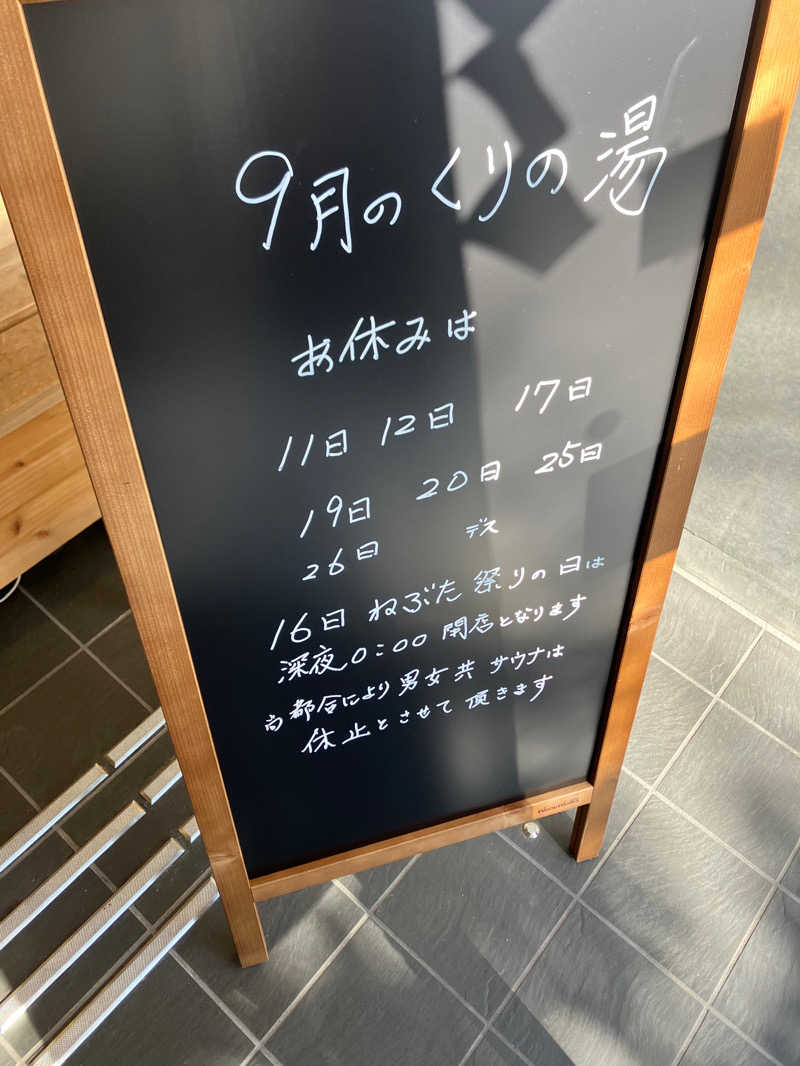 9月のくりの湯
お休みは
11日 12日 17日
19日 20日 25日
26日 デス
16日 ねぶた祭りの日は
深夜0:00 開店となります
尚都合により男女共 サウナは
休止とさせて頂きます